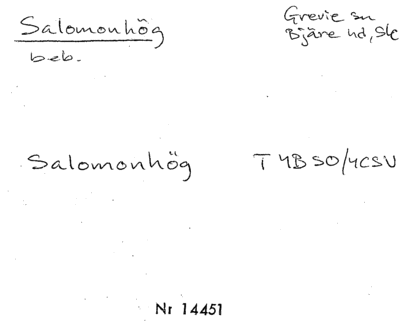 Salomonhög
Grevie sn
Bjäre hd, Sk
beb.
Salomonhög T 4B SO/4C SV
Nr 14451